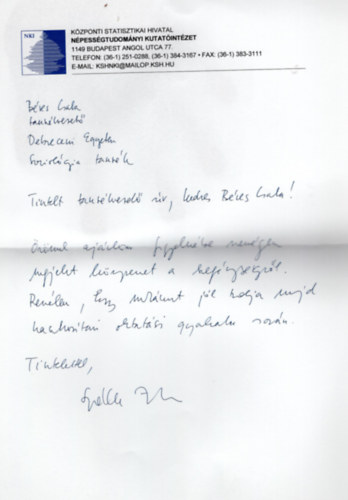 NKI
KÖZPONTI STATISZTIKAI HIVATAL
NÉPESSÉGTUDOMÁNYI KUTATÓINTÉZET
1149 BUDAPEST ANGOL UTCA 77.
TELEFON: (36-1) 251-0288, (36-1) 384-3167 • FAX: (36-1) 383-3111
E-MAIL: KSHNKI@MAILOP.KSH.HU
Béres Csaba
tanszékvezető
Debreceni Egyetem
Szociológia tanszék
Tisztelt tanszékvezető úr, kedves Béres Csaba!
Örömmel ajánlom figyelmébe nemrégen
megjelent könyvemet a szegénységről.
Remélem, hogy műként jól tudja majd
hasznosítani oktatási gyakorlata során.
Tisztelettel,